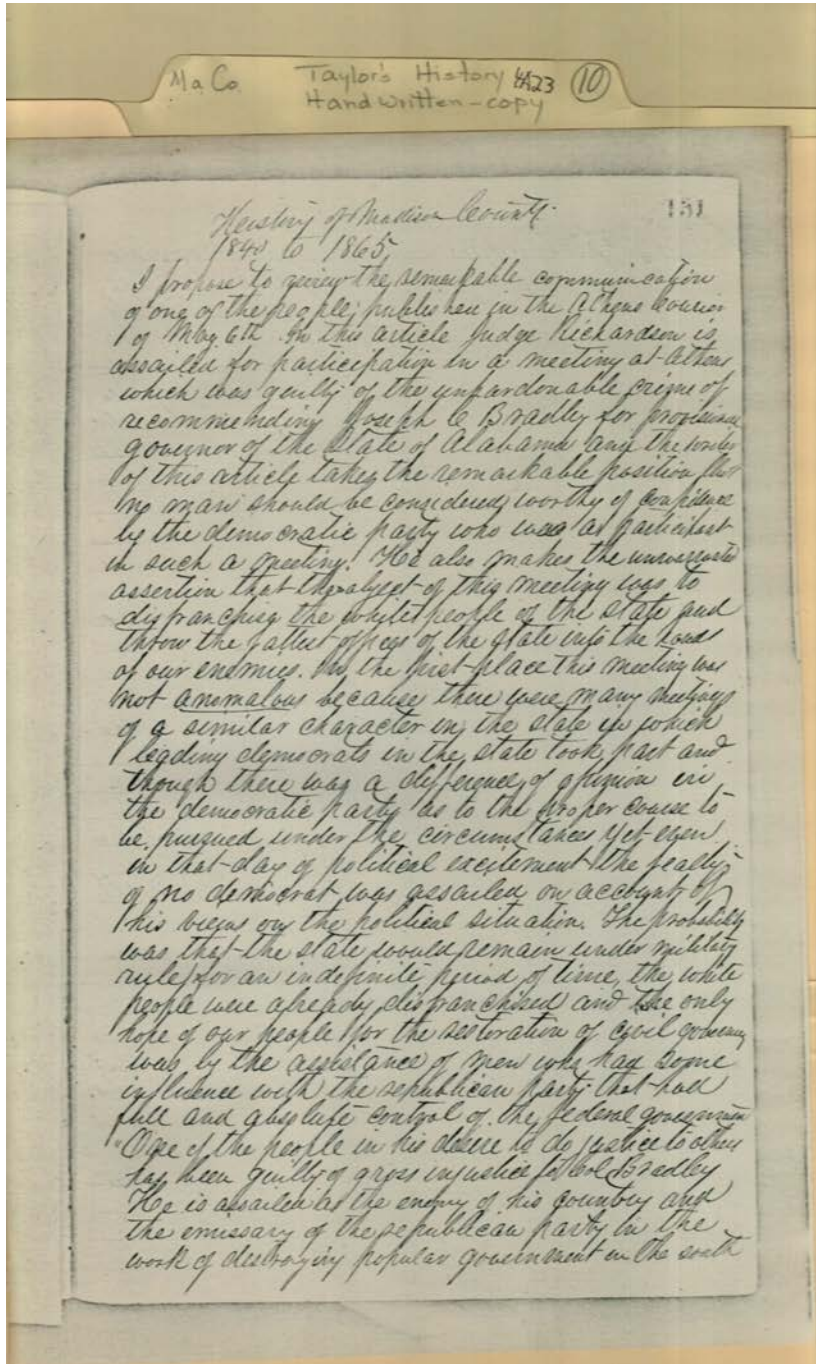 Ma Co Taylor's History 4A23 10
Handwritten - copy
131
History of Madison County.
1840 to 1865,
I propose to review the remarkable communication
of one of the people; published in the Athens Courier
of May 6th. In this article Judge Richardson is
assailed for participation in a meeting at Athens
which was guilty of the unpardonable crime of
recommending Joseph C Bradly for provisional
governor of the State of Alabama and the writer
of this article takes the remarkable position that
no man should be considered worthy of confidence
by the democratic party who was a participant
in such a meeting. He also makes the unwarranted
assertion that the object of this meeting was to
disfranchise the white people of the state and
throw the fattest offices of the state into the hands
of our enemies. In the first place this meeting was
not anomalous because there were many meetings
of a similar character in the state in which
leading democrats in the state took part and
though there was a difference of opinion in
the democratic party as to the proper course to
be pursued under the circumstances yet even
in that day of political excitement the fealty
of no democrat was assailed on account of
his views on the political situation. The probability
was that the state would remain under military
rule for an indefinite period of time, the white
people were already disfranchised and the only
hope of our people for the restoration of civil government
was by the assistance of men who had some
influence with the republican party that had
full and absolute control of the federal government
"One of the people in his desire to do justice to others
has been guilty of gross injustice to Col Bradley
He is assailed as the enemy of his country and
the emissary of the republican party in the
work of destroying popular government in the south